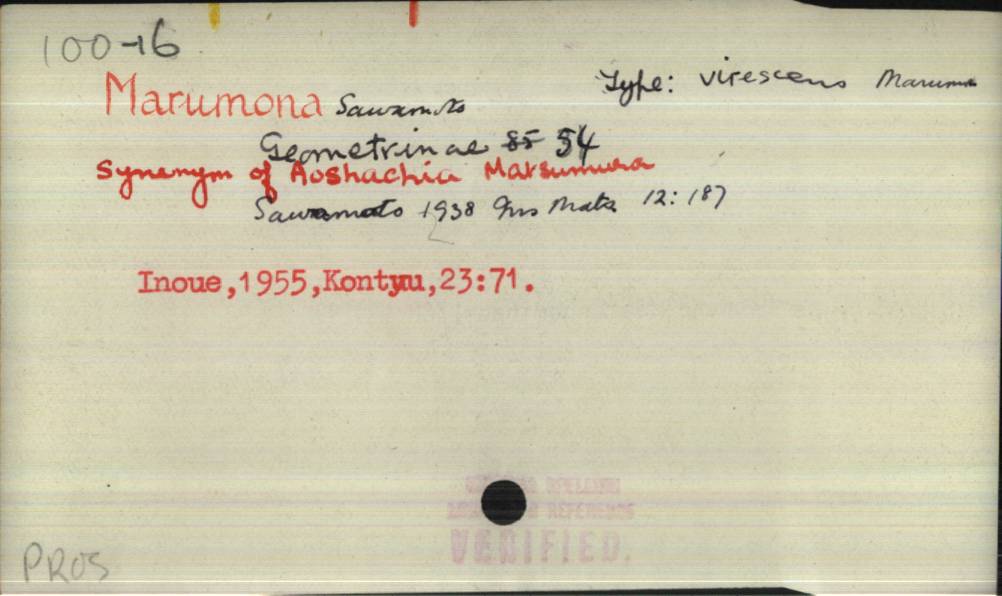 100-16
Marumona Sawamoto Type: virescens Marumo
Geometrinae 85 54
Synonym of Aoshachia Matsumura
Sawamoto 1938 Ins Mats 12: 187
Inoue,1955,Kontyu,23:71.
SPELLING
REFERENCE
VERIFIED.
PROS